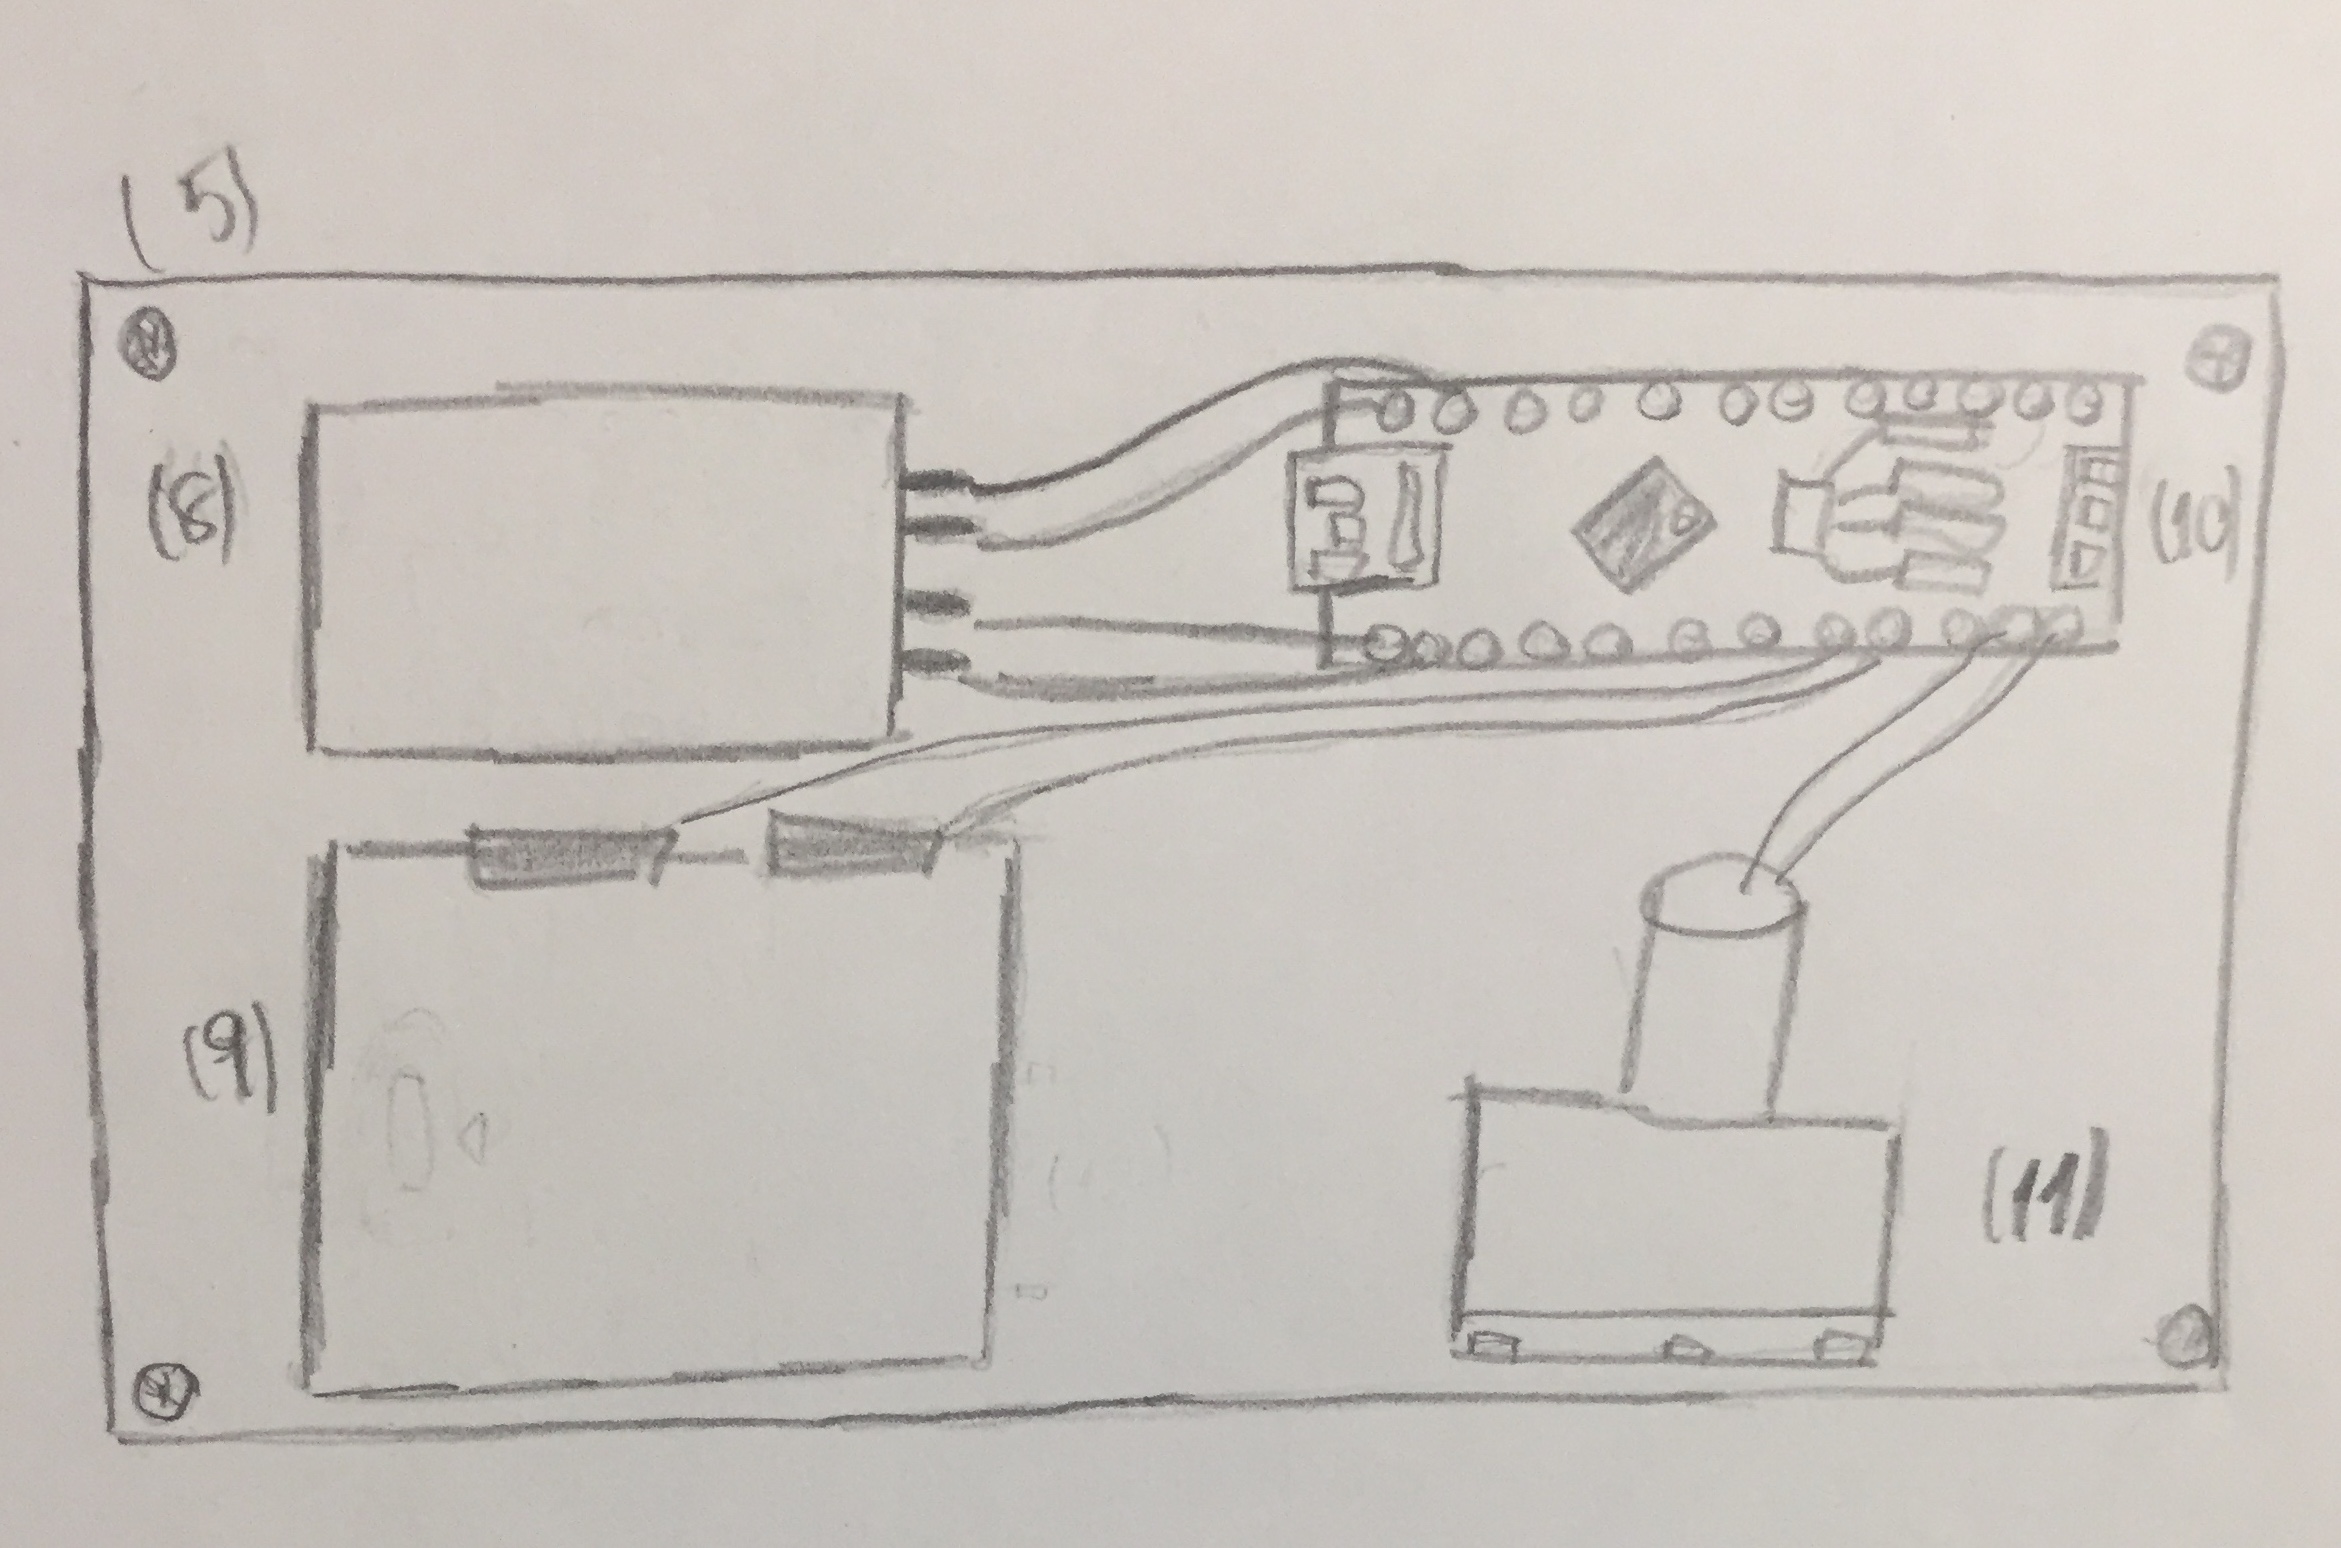 (5)
(8)
(10)
(9)
(11)